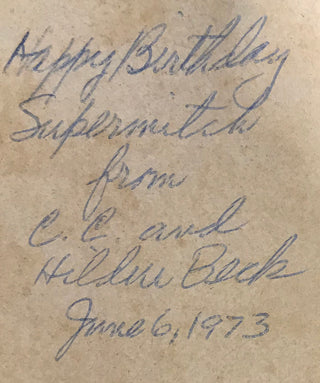 Happy Birthday
Supermitch
from
C. C. and
Hildur Beck
June 6, 1973